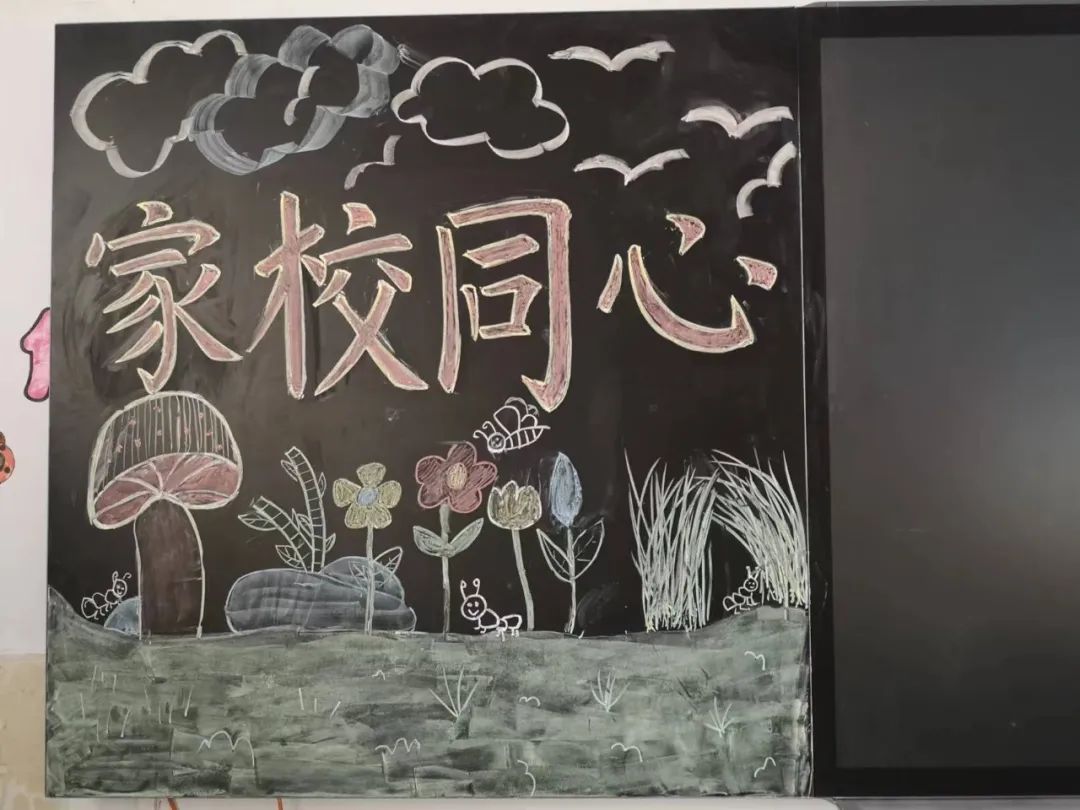 家校同心